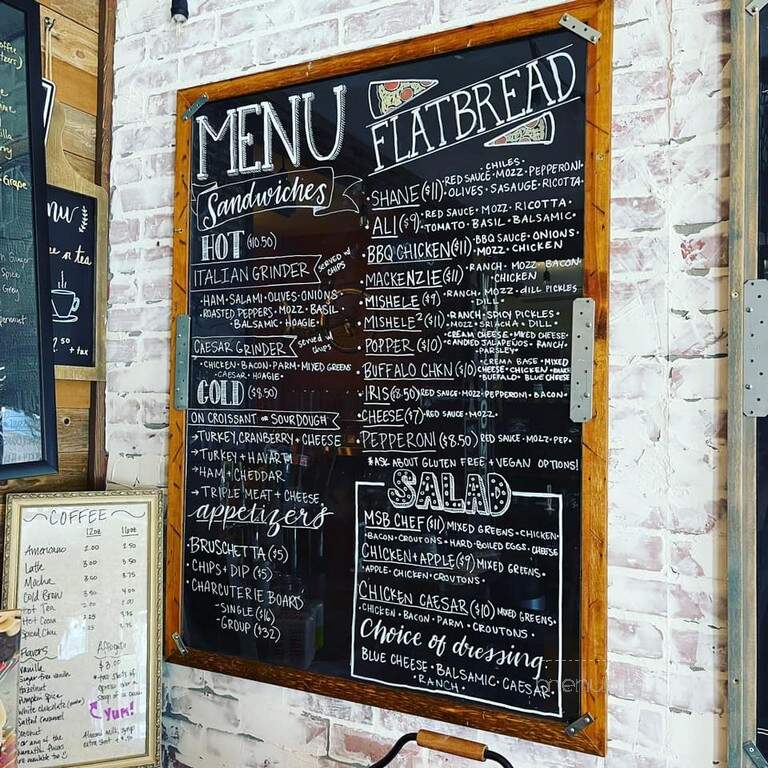 MENU
Sandwiches
HOT ($10.50)
ITALIAN GRINDER SERVED W/ CHIPS
HAM • SALAMI • OLIVES • ONIONS •
ROASTED PEPPERS • MOZZ • BASIL
• BALSAMIC • HOAGIE •
CAESAR GRINDER served w/ chips
• CHICKEN • BACON • PARM • MIXED GREENS
• CAESAR • HOAGIE •
COLD ($8.50)
ON CROISSANT OR SOURDOUGH
→ TURKEY, CRANBERRY + CHEESE
→ TURKEY + HAVARTI
→ HAM + CHEDDAR
→ TRIPLE MEAT + CHEESE
appetizers
• BRUSCHETTA ($5)
• CHIPS + DIP ($5)
• CHARCUTERIE BOARD
- SINGLE ($16)
- GROUP ($32)
FLATBREAD
• CHILES •
SHANE ($11) • RED SAUCE • MOZZ • PEPPERONI •
OLIVES • SASAUGE • RICOTTA •
ALI ($9) • RED SAUCE • MOZZ • RICOTTA •
TOMATO • BASIL • BALSAMIC •
BBQ CHICKEN ($11) • BBQ SAUCE • ONIONS •
MOZZ • CHICKEN
MACKENZIE ($11) • RANCH • MOZZ • BACON •
CHICKEN
MISHELE ($9) • RANCH • MOZZ • dill PICKLES
• DILL •
MISHELE² ($11) • RANCH • SPICY PICKLES •
MOZZ • SRIACHA • DILL •
POPPER ($10) • CREAM CHEESE • MIXED CHEESE •
CANDIED JALAPEÑOS • RANCH •
PARSLEY •
BUFFALO CHKN ($10) • CREMA BASE • MIXED
CHEESE • CHICKEN •
BUFFALO • BLUE CHEESE
IRIS ($8.50) RED SAUCE • MOZZ • PEPPERONI • BACON •
CHEESE ($7) • RED SAUCE • MOZZ •
PEPPERONI ($8.50) RED SAUCE • MOZZ • PEP •
*ASK ABOUT GLUTEN FREE + VEGAN OPTIONS!
SALAD
MSB CHEF ($11) MIXED GREENS • CHICKEN •
BACON • CROUTONS • HARD-BOILED EGGS • CHEESE
CHICKEN + APPLE ($9) MIXED GREENS •
APPLE • CHICKEN • CROUTONS •
CHICKEN CAESAR ($10) MIXED GREENS •
CHICKEN • BACON • PARM • CROUTONS •
Choice of dressing
BLUE CHEESE • BALSAMIC • CAESAR •
• RANCH •
COFFEE
12oz 16oz
Americano 2.00 2.50
Latte 3.00 3.50
Mocha 3.75
Cold Brew 3.50 4.00
Hot Tea
Hot Cocoa
Spiced Chai
Flavors
vanilla
sugar free vanilla
hazelnut
Pumpkin Spice
white chocolate
Salted caramel
Affogato
$3.00
two shots of
Yum!
+ tax
Grape
Spice
Grey